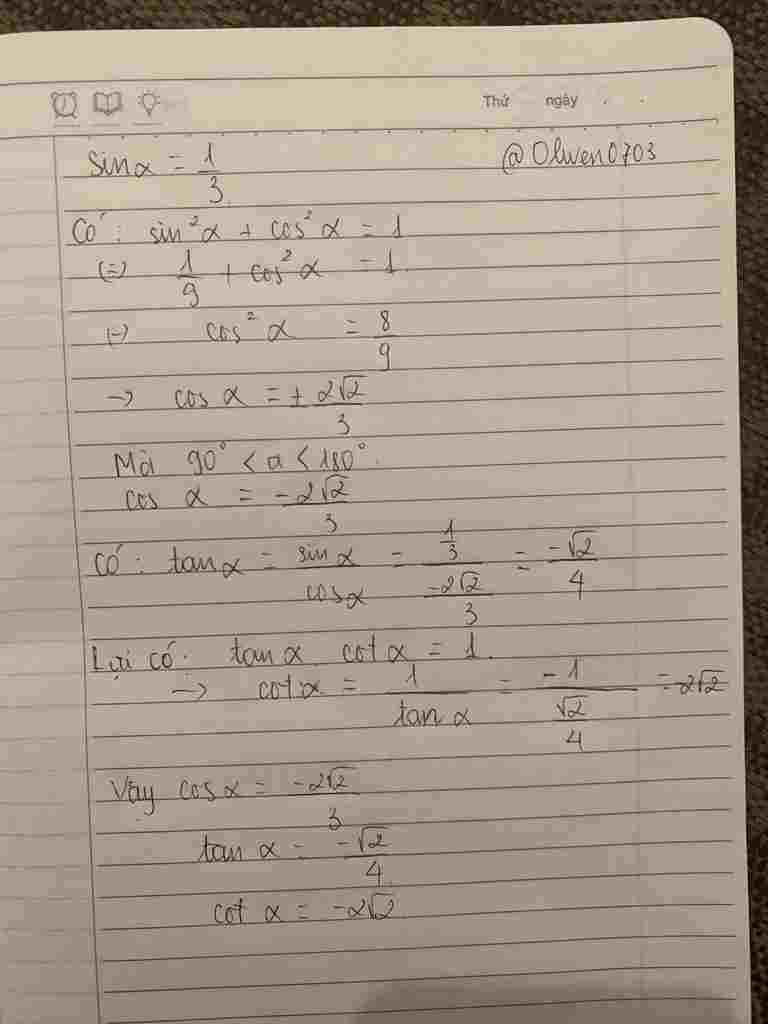 Thứ ngày
@Olwen0703
sinα = 1/3
Có: sin²α + cos²α = 1
(=) 1/9 + cos²α = 1
(-) cos²α = 8/9
-> cos α = ± 2√2/3
Mà 90° < a < 180°.
cos α = -2√2/3
Có: tanα = sinα/cosα = (1/3)/(-2√2/3) = -√2/4
Lại có: tanα cotα = 1.
-> cotα = 1/tanα = -1/(√2/4) = -2√2
Vậy cosα = -2√2/3
tan α = -√2/4
cot α = -2√2